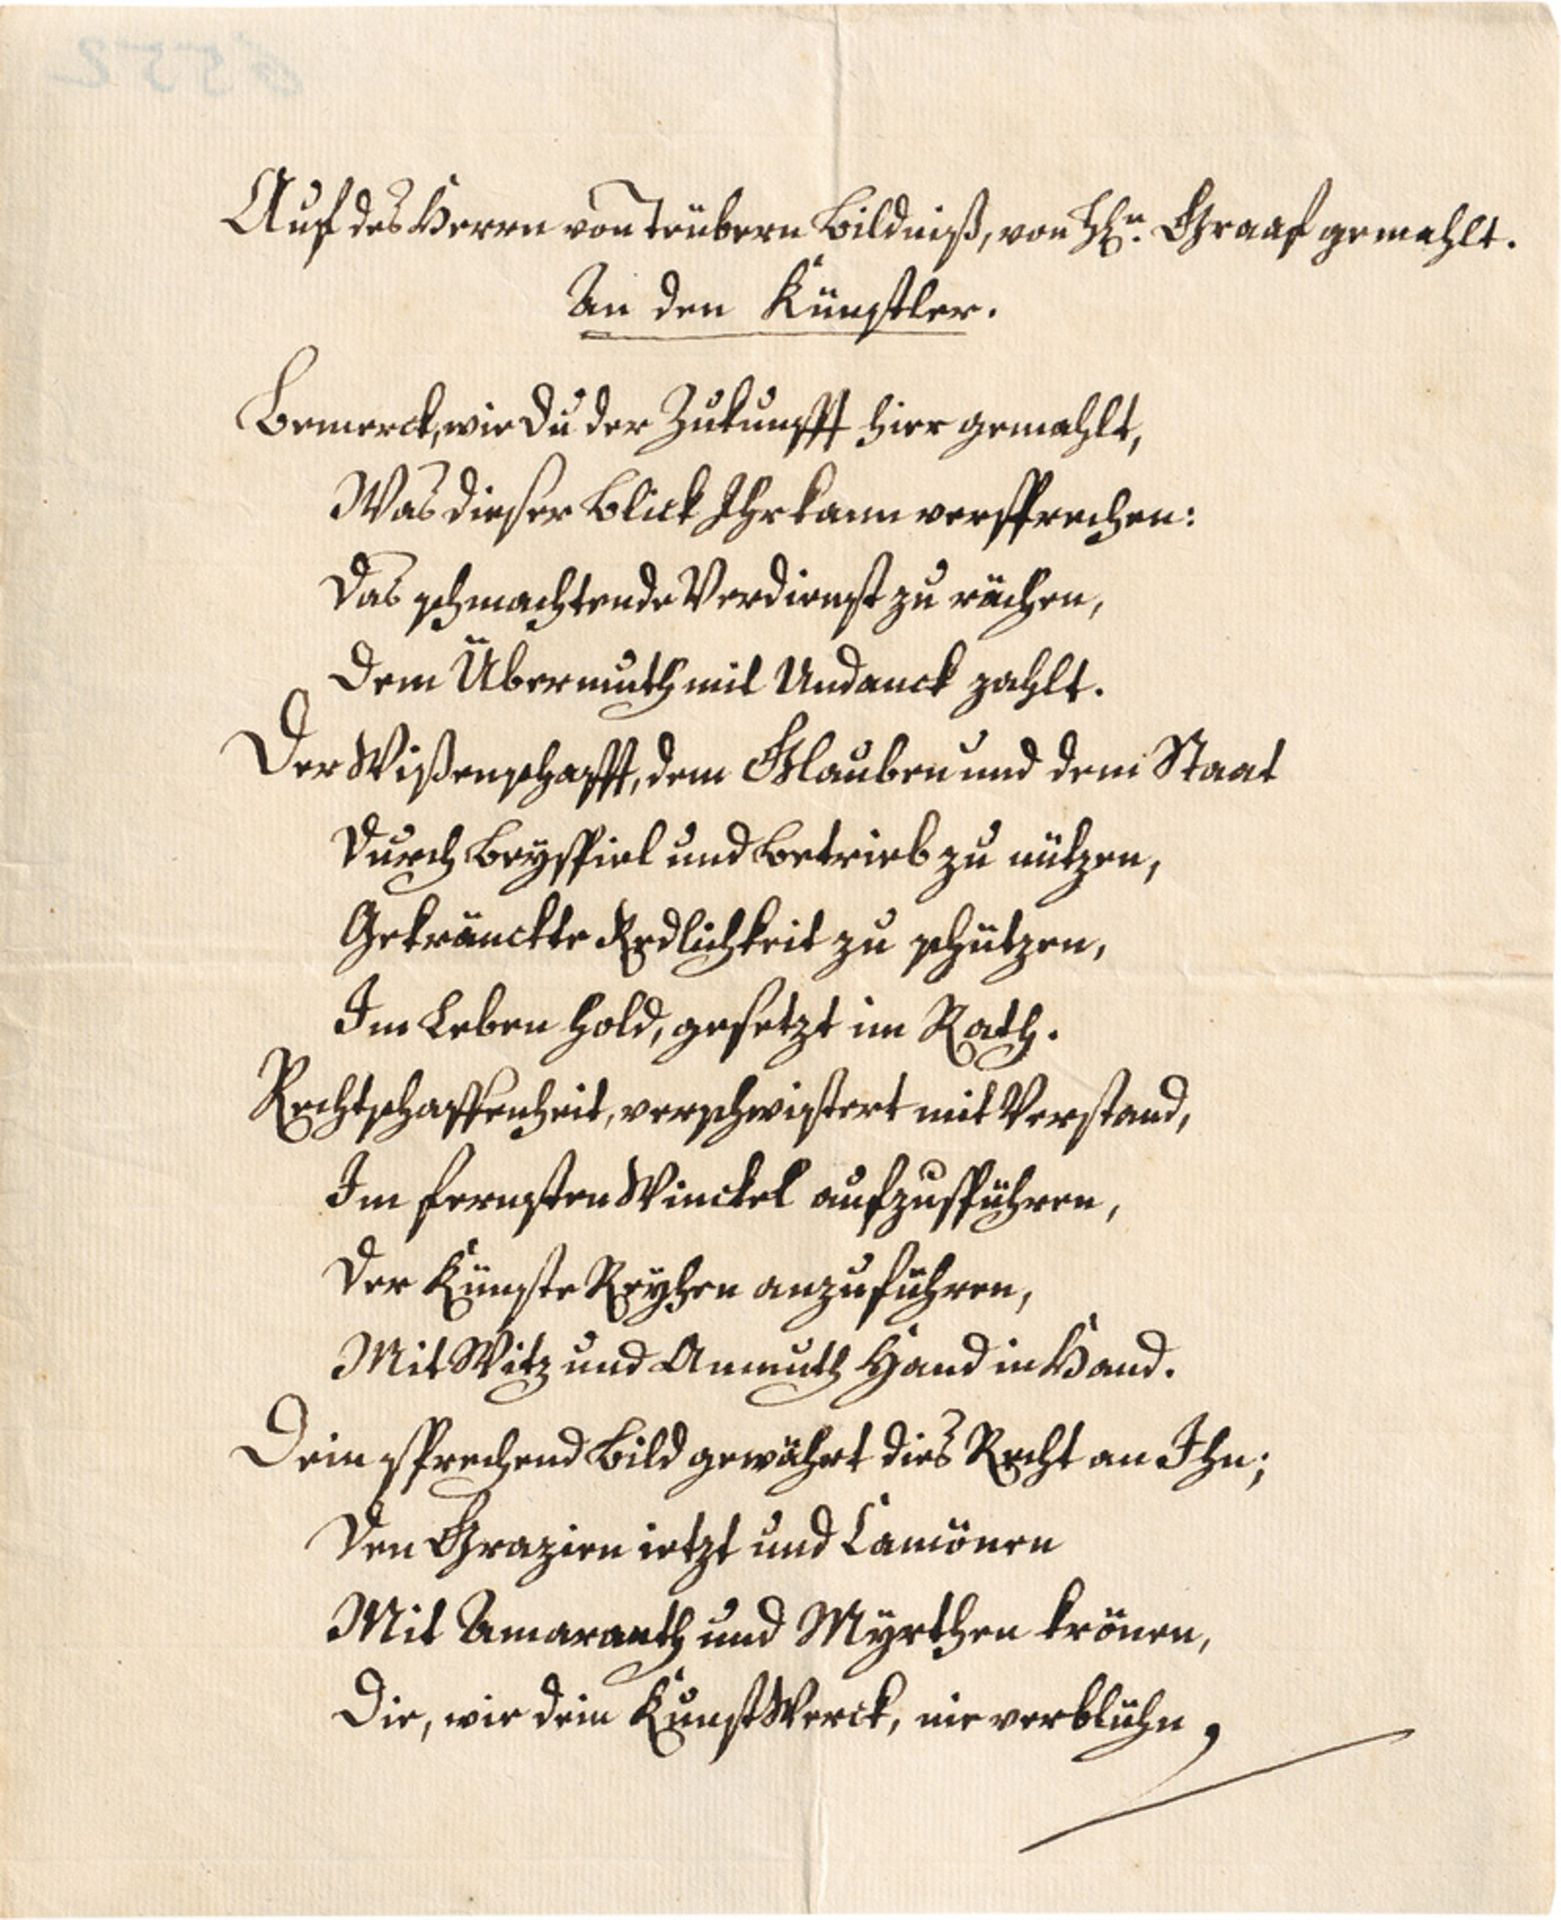 Auf des Herrn von Teubern Bildniß, von Hℓn. Graaf gemahlt.
An den Künstler.
Bemerck, wie Du der Zukunfft hier gemahlt,
Was dieser Blick Ihr kann versprechen:
Das schmachtende Verdienst zu rächen,
Dem Übermuth mit Undanck zahlt.
Der Wißenschafft, dem Glauben und dem Staat
Durch Beyspiel und Betrieb zu nützen,
Gekränckte Redlichkeit zu schützen,
Im Leben hold, gesetzt im Rath.
Rechtschaffenheit, verschwistert mit Verstand,
Im fernsten Winckel aufzuspühren,
Der Künste Reyhen anzuführen,
Mit Witz und Anmuth Hand in Hand.
Dein sprechend Bild gewährt dies Recht an Ihn;
Den Grazien ietzt und Camönen
Mit Amaranth und Myrthen krönen,
Die, wie dein KunstWerck, nie verblühn,